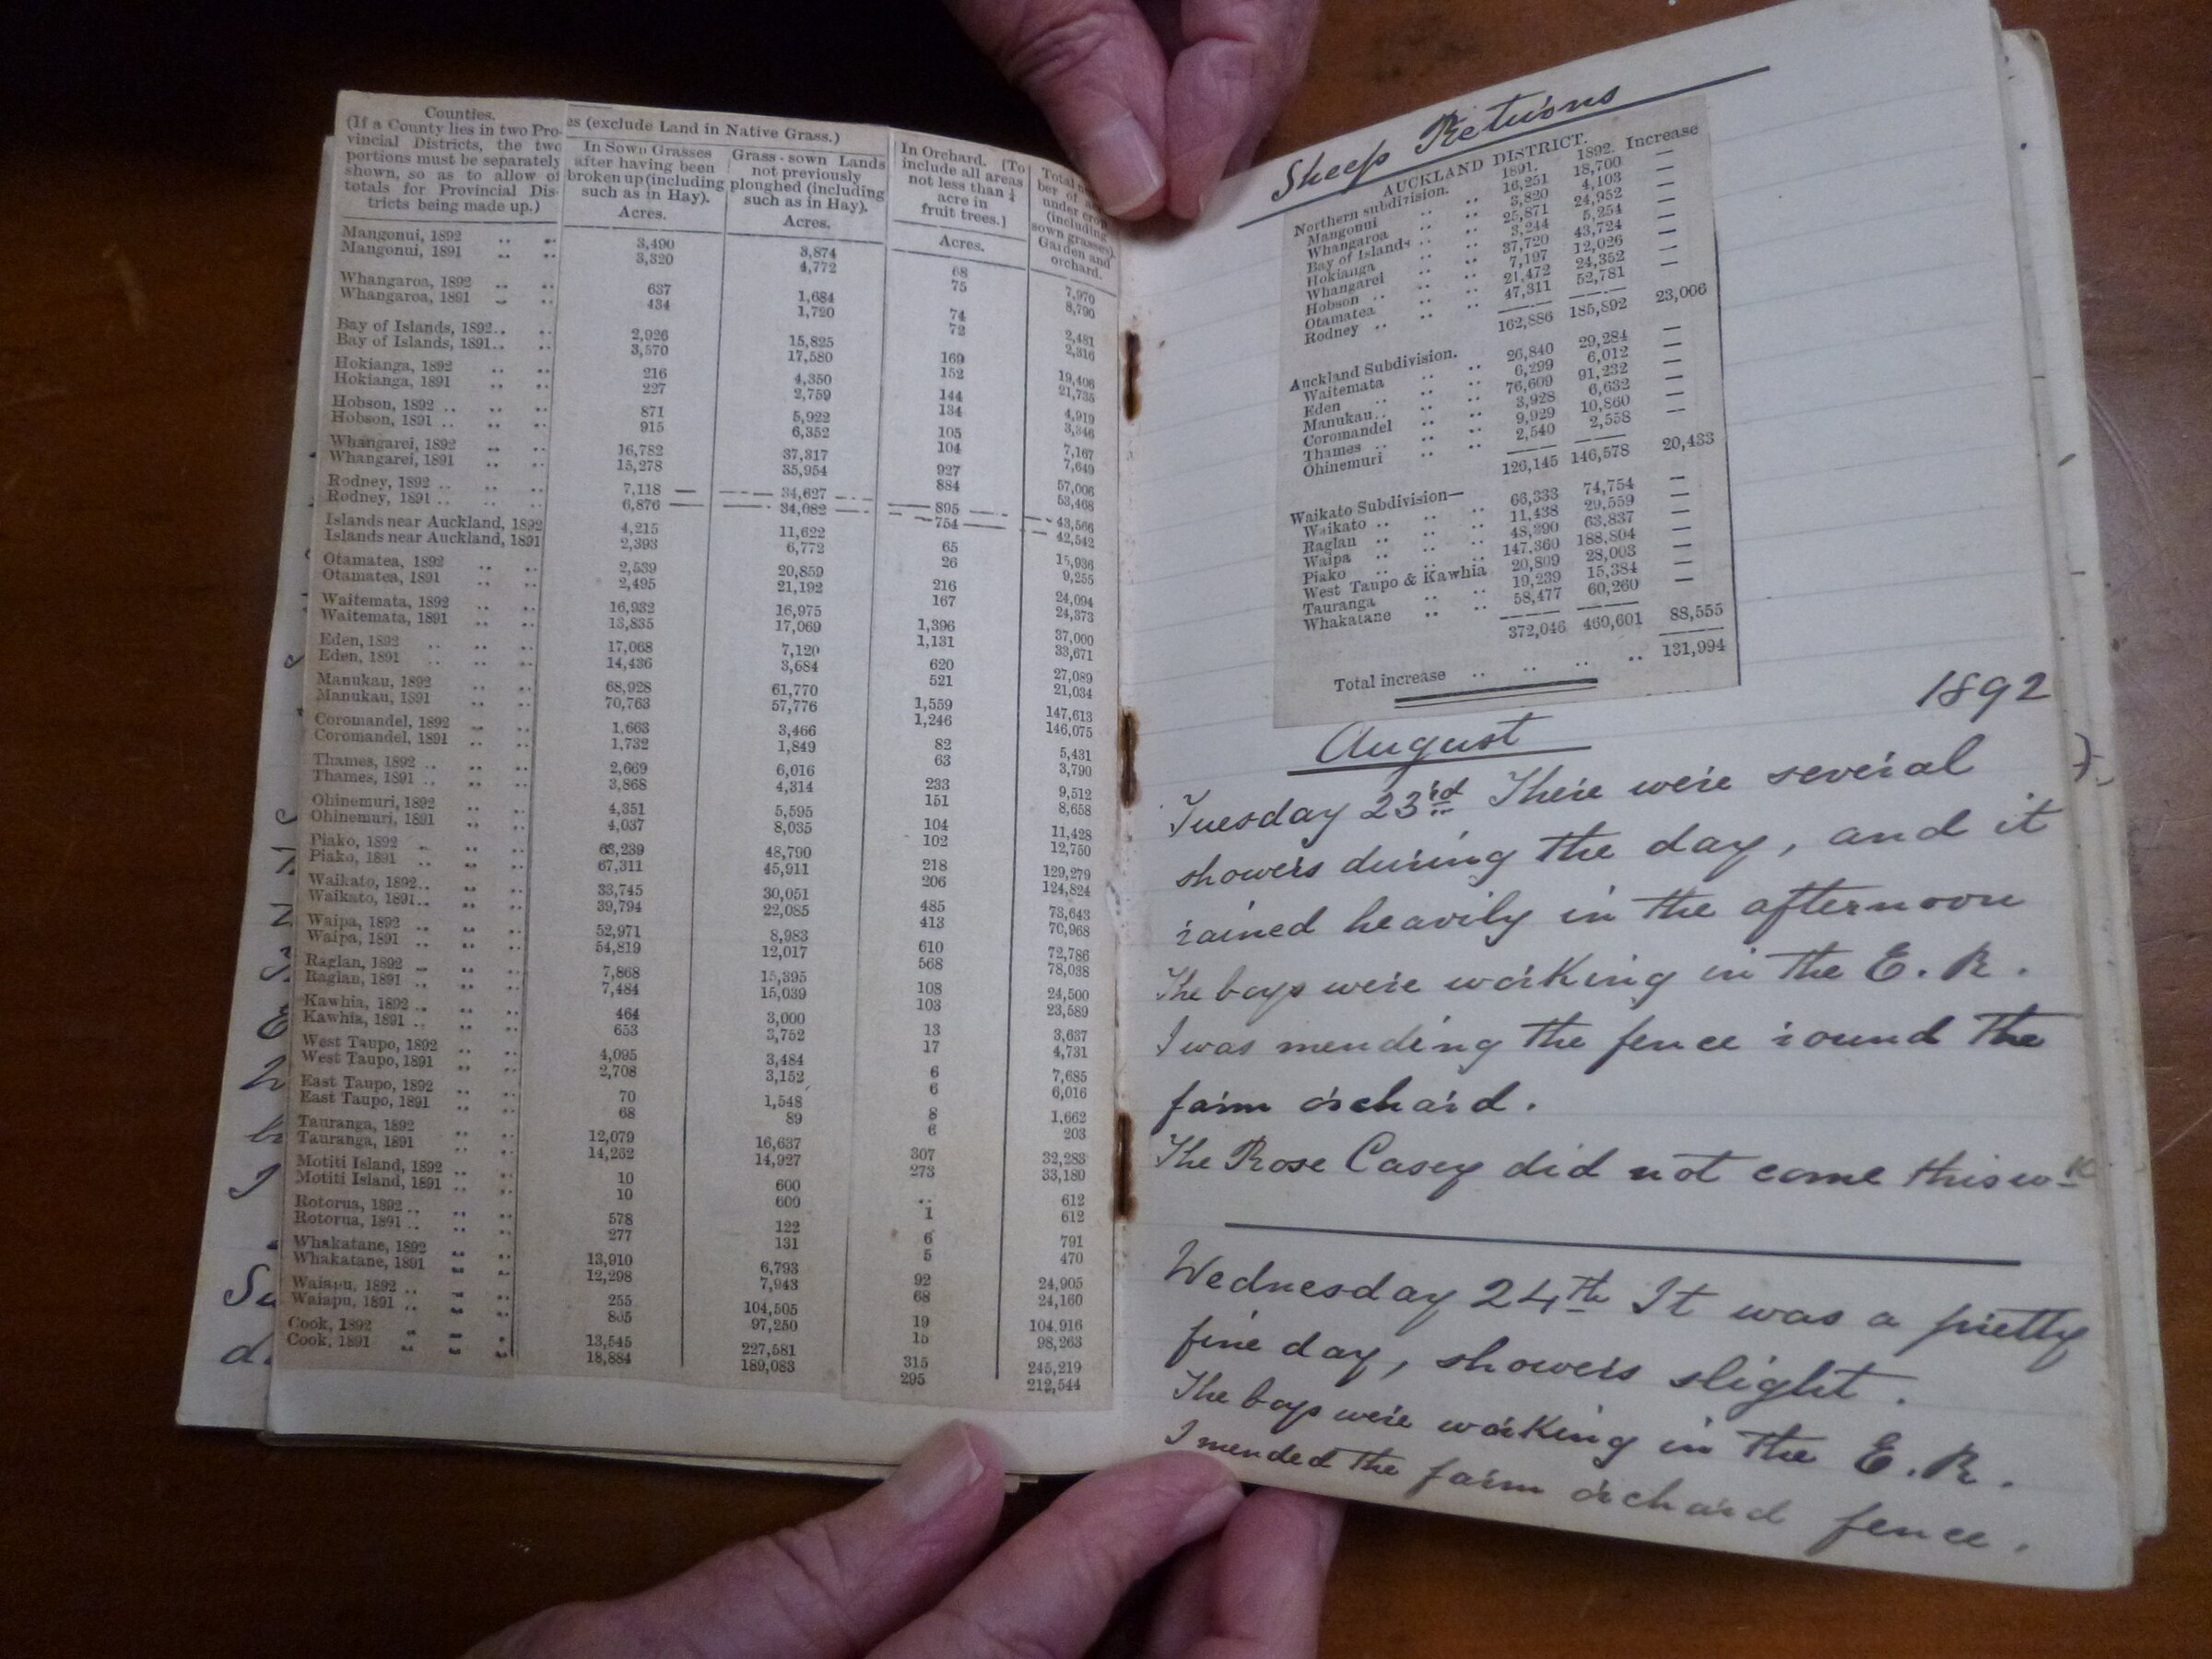 Counties.
(If a County lies in two Pro-
vincial Districts, the two
portions must be separately
shown, so as to allow of
totals for Provincial Dis-
tricts being made up.)
es (exclude Land in Native Grass.)
In Sown Grasses
after having been
broken up (including
such as in Hay).
Acres.
Grass-sown Lands
not previously
ploughed (including
such as in Hay).
Acres.
In Orchard. (To
include all areas
not less than ¼
acre in
fruit trees.]
Acres.
Total
ber of
under crop
(including
sown grasses),
Garden and
orchard.
Mangonui, 1892 .. .. 3,490 3,874 68 7,970
Mangonui, 1891 .. .. 3,320 4,772 75 8,790
Whangaroa, 1892 .. .. 637 1,684 74 2,481
Whangaroa, 1891 .. .. 434 1,720 72 2,316
Bay of Islands, 1892.. .. 2,926 15,825 169 19,406
Bay of Islands, 1891.. .. 3,570 17,580 152 21,735
Hokianga, 1892 .. .. 216 4,350 144 4,919
Hokianga, 1891 .. .. 227 2,759 134 3,346
Hobson, 1892 .. .. .. 871 5,922 105 7,167
Hobson, 1891 .. .. .. 915 6,352 104 7,649
Whangarei, 1892 .. .. 16,782 37,317 927 57,006
Whangarei, 1891 .. .. 15,278 35,954 884 53,468
Rodney, 1892 .. .. .. 7,118 34,627 895 43,566
Rodney, 1891 .. .. .. 6,876 34,082 754 42,542
Islands near Auckland, 1892 4,215 11,622 65 15,936
Islands near Auckland, 1891 2,393 6,772 26 9,255
Otamatea, 1892 .. .. 2,539 20,859 216 24,094
Otamatea, 1891 .. .. 2,495 21,192 167 24,373
Waitemata, 1892 .. .. 16,932 16,975 1,396 37,000
Waitemata, 1891 .. .. 13,835 17,069 1,131 33,671
Eden, 1892 .. .. .. 17,068 7,120 620 27,089
Eden, 1891 .. .. .. 14,436 3,684 521 21,034
Manukau, 1892 .. .. 68,928 61,770 1,559 147,613
Manukau, 1891 .. .. 70,763 57,776 1,246 146,075
Coromandel, 1892 .. .. 1,663 3,466 82 5,431
Coromandel, 1891 .. .. 1,732 1,849 63 3,790
Thames, 1892 .. .. .. 2,669 6,016 233 9,512
Thames, 1891 .. .. .. 3,868 4,314 151 8,658
Ohinemuri, 1892 .. .. 4,351 5,595 104 11,428
Ohinemuri, 1891 .. .. 4,037 8,035 102 12,750
Piako, 1892 .. .. .. 63,239 48,790 218 129,279
Piako, 1891 .. .. .. 67,311 45,911 206 124,824
Waikato, 1892.. .. .. 33,745 30,051 485 73,643
Waikato, 1891.. .. .. 39,794 22,085 413 70,968
Waipa, 1892 .. .. .. 52,971 8,983 610 72,786
Waipa, 1891 .. .. .. 54,819 12,017 568 78,038
Raglan, 1892 .. .. .. 7,868 15,395 108 24,500
Raglan, 1891 .. .. .. 7,484 15,039 103 23,589
Kawhia, 1892 .. .. .. 464 3,000 13 3,637
Kawhia, 1891 .. .. .. 653 3,752 17 4,731
West Taupo, 1892 .. .. 4,095 3,484 6 7,685
West Taupo, 1891 .. .. 2,708 3,152 6 6,016
East Taupo, 1892 .. .. 70 1,548 8 1,662
East Taupo, 1891 .. .. 68 89 6 203
Tauranga, 1892 .. .. 12,079 16,637 307 32,283
Tauranga, 1891 .. .. 14,262 14,927 273 33,180
Motiti Island, 1892 .. .. 10 600 .. 612
Motiti Island, 1891 .. .. 10 600 1 612
Rotorua, 1892 .. .. .. 578 122 6 791
Rotorua, 1891 .. .. .. 277 131 5 470
Whakatane, 1892 .. .. 13,910 6,793 92 24,905
Whakatane, 1891 .. .. 12,298 7,943 68 24,160
Waiapu, 1892 .. .. .. 255 104,505 19 104,916
Waiapu, 1891 .. .. .. 805 97,250 15 98,263
Cook, 1892 .. .. .. 13,545 227,581 315 245,219
Cook, 1891 .. .. .. 18,884 189,083 295 212,544
Sheep Returns
AUCKLAND DISTRICT.
Northern subdivision. 1891. 1892. Increase
Mangonui .. .. 16,251 18,700 —
Whangaroa .. .. 3,820 4,103 —
Bay of Islands .. .. 25,871 24,952 —
Hokianga .. .. 3,244 5,254 —
Whangarei .. .. 37,720 43,724 —
Hobson .. .. .. 7,197 12,026 —
Otamatea .. .. 21,472 24,352 —
Rodney .. .. .. 47,311 52,781 —
162,886 185,892 23,006
Auckland Subdivision.
Waitemata .. .. 26,840 29,284 —
Eden .. .. 6,299 6,012 —
Manukau.. .. .. 76,609 91,232 —
Coromandel .. .. 3,928 6,632 —
Thames .. .. .. 9,929 10,860 —
Ohinemuri .. .. 2,540 2,558 —
126,145 146,578 20,433
Waikato Subdivision—
Waikato .. .. .. 66,333 74,754 —
Raglan .. .. .. 11,438 29,559 —
Waipa .. .. .. 48,390 63,837 —
Piako .. .. .. 147,360 188,804 —
West Taupo & Kawhia 20,809 28,003 —
Tauranga .. .. 19,239 15,384 —
Whakatane .. .. 58,477 60,260 —
372,046 460,601 88,555
Total increase .. .. .. .. 131,994
1892
August
Tuesday 23rd There were several
showers during the day, and it
rained heavily in the afternoon
The boys were working in the E. R.
I was mending the fence round the
farm orchard.
The Rose Casey did not come this wk
Wednesday 24th It was a pretty
fine day, showers slight.
The boys were working in the E. R.
I mended the farm orchard fence.